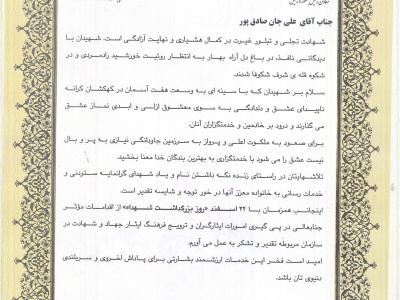 جناب آقای علی جان صادق پور
شهادت تجلی و تبلور غیرت در کمال هشیاری و نهایت آزادگی است. شهیدان با
دیدگانی نافذ، در باغ دل آراء بهار به انتظار روئیت خورشید رادمردی و در
شکوه قله ی شرف شکوفا شدند.
سلام بر شهیدان که با سینه ای به وسعت هفت آسمان در کهکشان کرانه
ناپیدای عشق و دلدادگی به سوی معشوق ازلی و ابدی نماز عشق
می گذارند و درود بر خادمین و خدمتگزاران آنان.
برای صعود به ملکوت اعلی و پرواز به سرزمین جاودانگی نیازی به پر و بال
نیست عشق را می شود با خدمتگزاری به بهترین بندگان خدا معنا بخشید.
تلاشهایتان در راستای زنده نگه داشتن نام و یاد شهدای گرانمایه ستودنی و
خدمات رسانی به خانواده معزز آنها در خور توجه و شایسته تقدیر است.
اینجانب همزمان با ۲۲ اسفند «روز بزرگداشت شهداء» از اقدامات مؤثر
جنابعالی در پی گیری امورات ایثارگران و ترویج فرهنگ ایثار جهاد و شهادت در
سازمان مربوطه تقدیر و تشکر به عمل می آورم.
امید است فخر این خدمات ارزشمند بشارتی برای پاداش اخروی و سربلندی
دنیوی تان باشد.